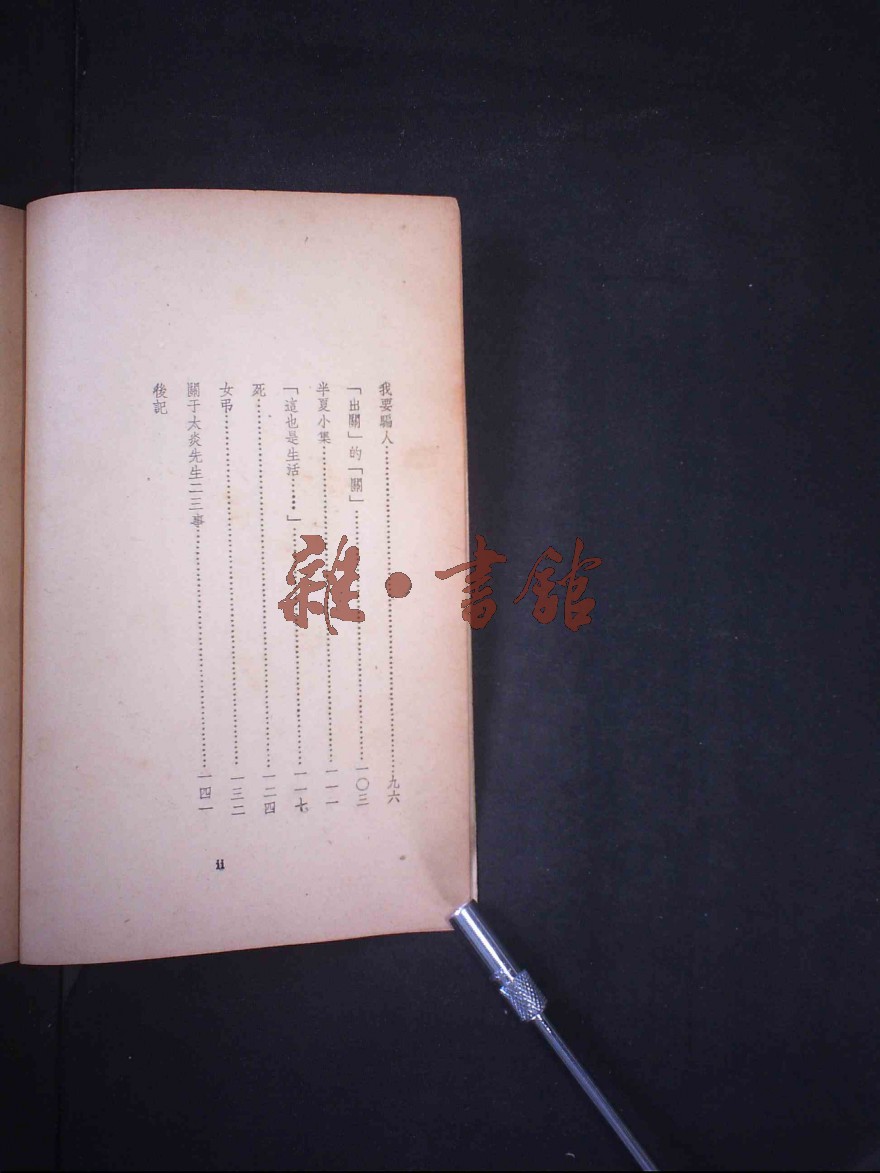 我要騙人……………………九六
「出關」的「關」……………………一〇三
半夏小集……………………一一一
「這也是生活……」……………………一一七
死……………………一二四
女弔……………………一三二
關于太炎先生二三事……………………一四一
後記
ii
雜·書館